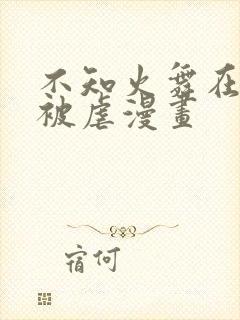 不知火舞在
被虐漫畫
宿何